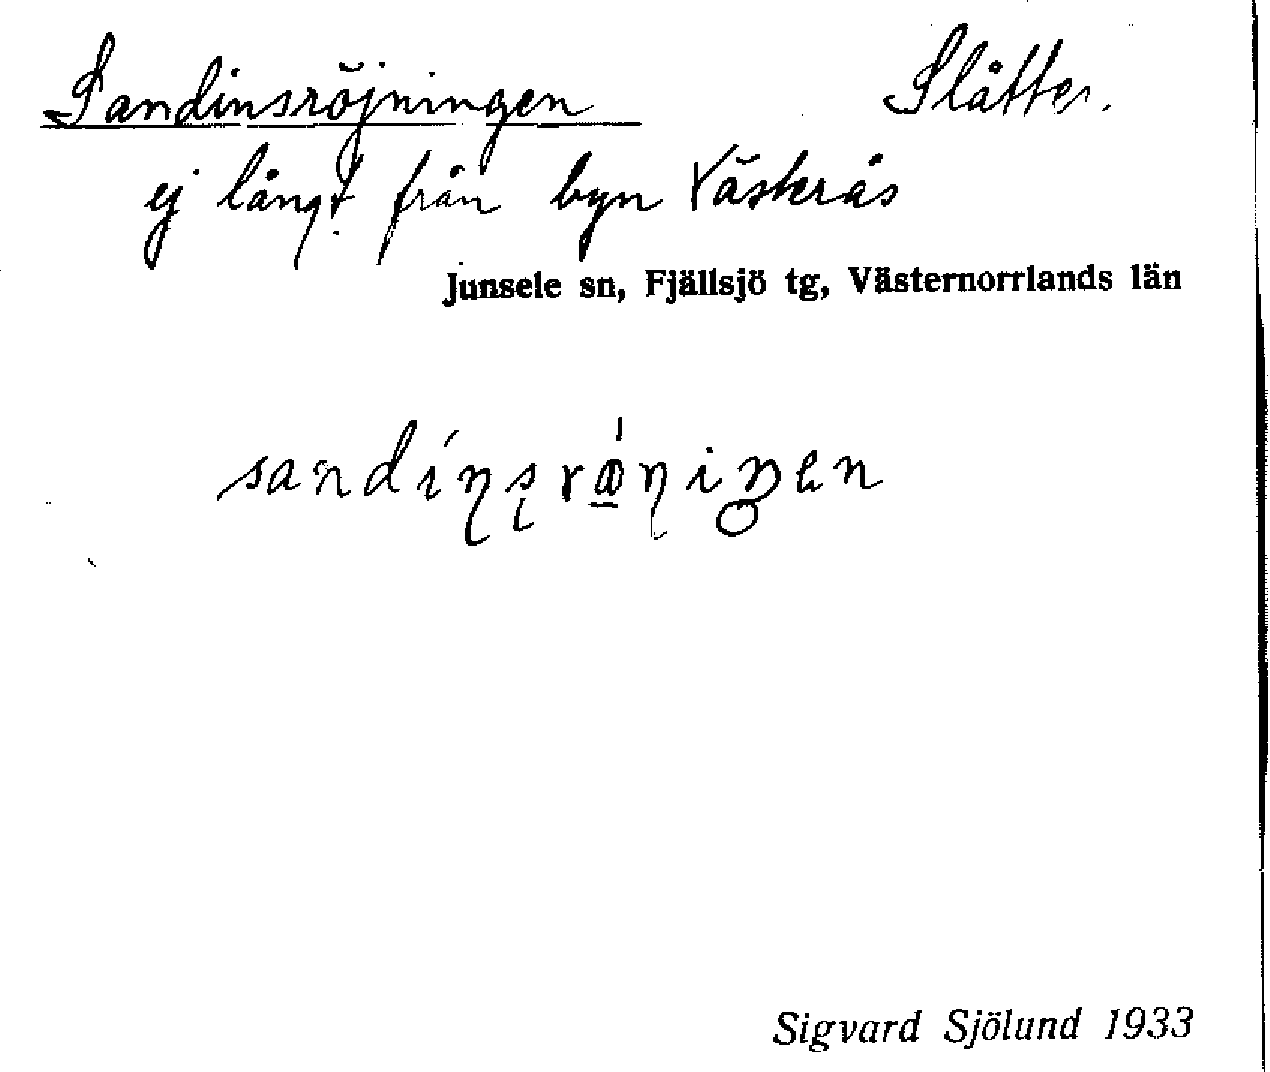 Sandinsröjningen Slåtter.
ej långt från byn Västerås
Junsele sn, Fjällsjö tg, Västernorrlands län
Sigvard Sjölund 1933